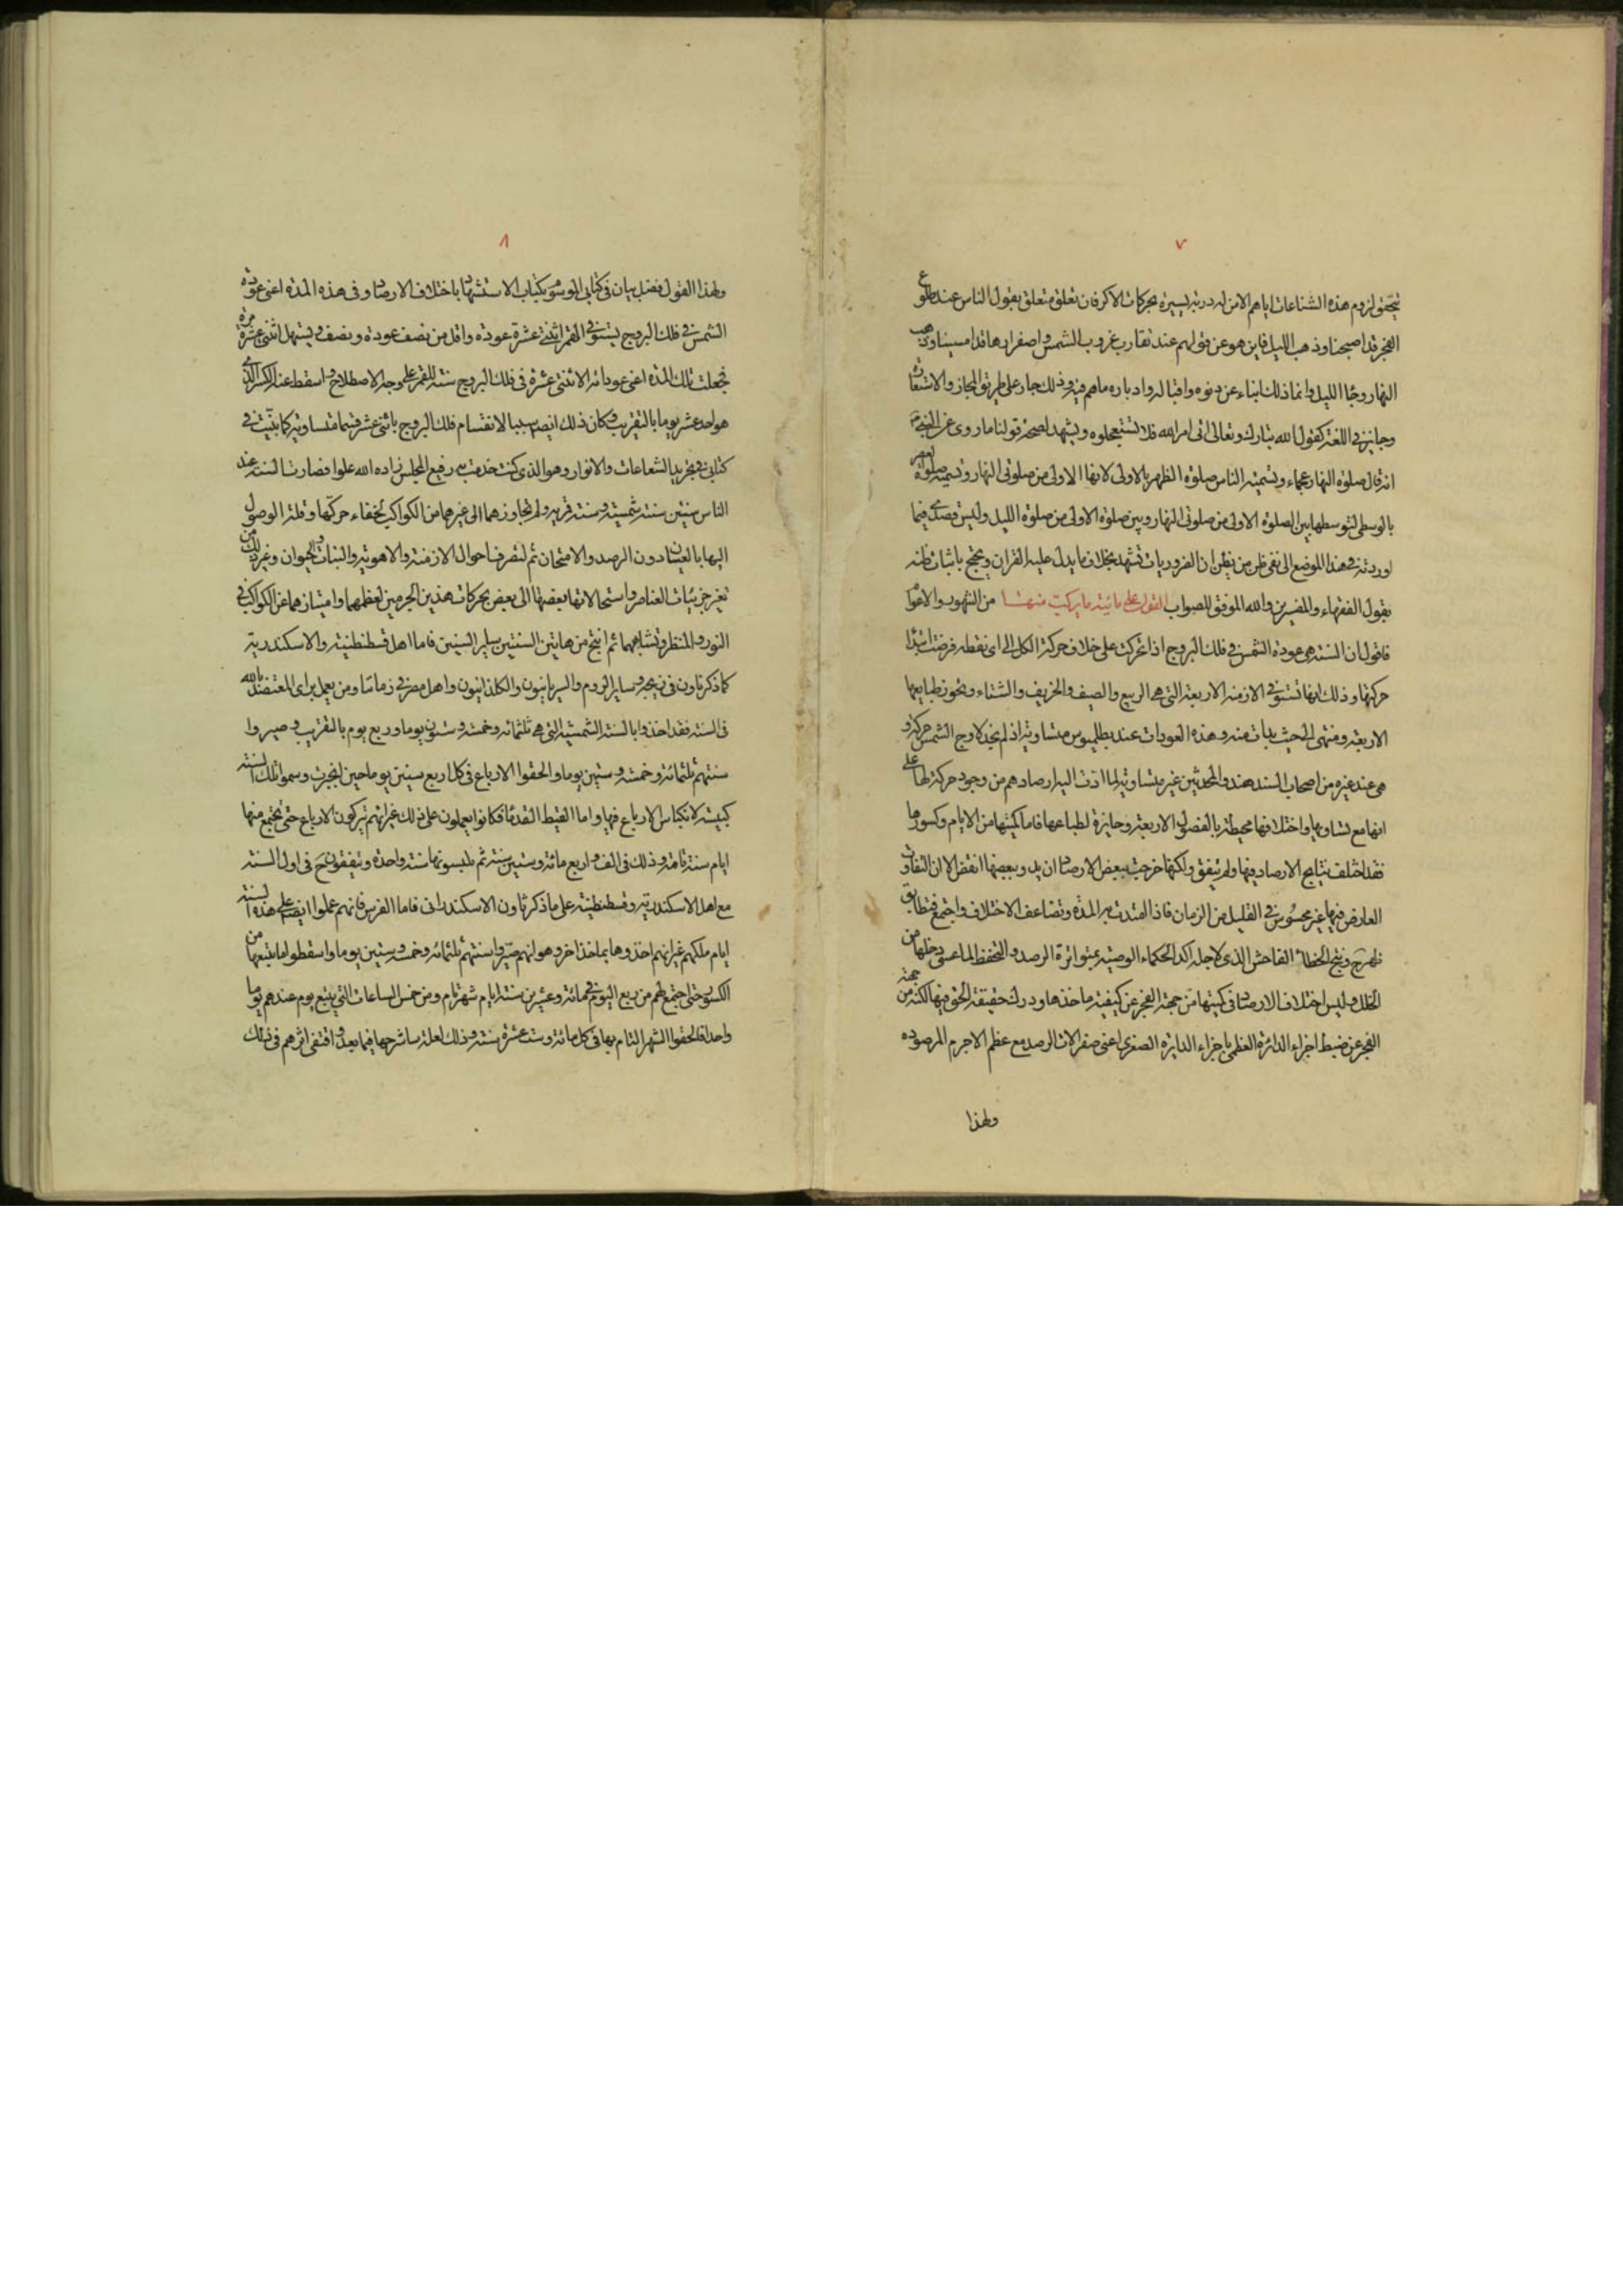 ٧
يتحقق لزوم هذه الشناعات اياهم الا من له دربة يسيرة بحركات الاكر فان تعلق متعلق بقول الناس عند طلوع
الفجر قد اصبحنا وذهب الليل فاين هو عن قولهم عند تقارب غروب الشمس واصفرارها قد امسينا وذهب
النهار وجاء الليل وانما ذلك انباء عن دنوه واقباله وادباره ما هم فيه وذلك جار على طريق المجاز والاستعارة
وجايز في اللغة كقول الله تبارك وتعالى اتى امر الله فلا تستعجلوه ويشهد لصحة قولنا ما روى عن النبي
انه قال صلوة النهار عجماء وتسمية الناس صلوة الظهر بالاولى لانها الاولى من صلوتى النهار وتسمية صلوة العصر
بالوسطى لتوسطها بين الصلوة الاولى من صلوتى النهار وبين صلوة الاولى من صلوة الليل وليس قصدى فيما
اوردته فى هذا الموضع الى نفى ظن من يظن ان الضروريات تشهد بخلاف ما يدل عليه القران ويحتج باثبات ظنه
بقول الفقهاء والمفسرين والله الموفق للصواب القول على مائية ما يركب منها من الشهور والاعوام
فاقول ان السنة هى عودة الشمس فى فلك البروج اذا تحركت على خلاف حركة الكل الى اى نقطة فرضت ابتداء
حركتها وذلك انها تستوفى الازمنة الاربعة التى هى الربيع والصيف والخريف والشتاء وتحوز طبايعها
الاربعة ومنتهى الى حيث بدات منه وهذه العودات عند بطلميوس متساوية اذ لم يجد لاوج الشمس حركة و
هى عند غيره من اصحاب السند هند والمحدثين غير متساوية لما ادت اليه ارصادهم من وجود حركة لها على
انها مع تساويها واختلافها محيطة بالفصول الاربعة وحايزة لطباعها فاما كميتها من الايام وكسورها
فقد اختلفت نتايج الارصاد فيها ولم يتفق ولكنها خرجت ببعض الارصاد ازيد وببعضها انقص الا ان التفاوت
العارض فيها غير محسوس فى القليل من الزمان فاذا امتدت به المدة وتضاعف الاختلاف واجتمع فتطابق
ظهر ونتج الخطاء الفاحش الذى لاجله اكد الحكماء الوصية بمتواترة الرصد والتحفظ لما عسى دخلها من
الخلل وليس اختلاف الارصاد فى كميتها من جهة العجز عن كيفية ماخذها ودرك حقيقة الحق فيها لكنه من جهة
العجز عن ضبط اجزاء الدائرة العظمى باجزاء الدايرة الصغرى اعنى صغر الات الرصد مع عظم الاجرام المرصوده
ولهذا
٨
ولهذا القول فضل بيان فى كتابى الموسوم بكتاب الاستشهاد باختلاف الارصاد وفى هذه المدة اعنى عودة
الشمس فى فلك البروج يستوفى القمر اثنتى عشرة عودة واقل من نصف عودة ونصف ويستهل اثنتى عشرة مرة
فجعلت تلك المدة اعنى عوداته الاثنتى عشرة فى فلك البروج سنة للقمر على وجه الاصطلاح واسقط عنه الكسر الذى
هو احد عشر يوما بالتقريب وكان ذلك ايضا سببا لانقسام فلك البروج باثنى عشر قسما متساوية كما بينت فى
كتابى فى تجريد الشعاعات والانوار وهو الذى كنت خدمت به رفيع المجلس زاده الله علوا فصارت السنة عند
الناس سنتين سنة شمسية وسنة قمرية ولم يتجاوزهما الى غيرهما من الكواكب لخفاء حركتها وقلة الوصول
اليها بالعيان دون الرصد والامتحان ثم لتصرف احوال الازمنة والاهوية والنبات والحيوان وغير ذلك من
تغير جزئيات العناصر واستحالاتها بعضها الى بعض بحركات هذين الجرمين لعظمهما وامتيازهما عن الكواكب فى
النور والمنظر وتشابههما ثم انتج من هاتين السنتين ساير السنين فاما اهل قسطنطينية والاسكندرية
كما ذكر ثاون فى زيجه وساير الروم والسريانيون والكلدانيون واهل مصر فى زماننا ومن يعمل براى المعتضد بالله
فى السنة فقد اخذوا بالسنة الشمسية التى هى ثلثمائة وخمسة وستون يوما وربع يوم بالتقريب وصيروا
سنتهم ثلثمائة وخمسة وستين يوما والحقوا الارباع فى كل اربع سنين يوما حين انجبرت وسموا تلك السنة
كبيسة لانكباس الارباع فيها واما القبط القدماء فكانوا يعملون على ذلك غير انهم يتركون الارباع حتى تجتمع منها
ايام سنة تامة وذلك فى الف واربع مائة وستين سنة ثم يكبسونها سنة واحدة ويتفقون ح فى اول السنة
مع اهل الاسكندرية وقسطنطينية على ما ذكر ثاون الاسكندرانى فاما الفرس فانهم عملوا ايضا على هذه السنة
ايام ملكهم غير انهم اخذوها بماخذ اخر وهو انهم صيروا سنتهم ثلثمائة وخمسة وستين يوما واسقطوا ما يتبعها من
الكسور حتى اجتمع لهم من ربع اليوم فى مائة وعشرين سنة ايام شهر تام ومن خمس الساعات التى يتبع يوم عندهم يوما
واحدا فالحقوا الشهر التام بها فى كل مائة وست عشرة سنة وذلك لعلة ساشرحها فيما بعد واقتفى اثرهم فى ذلك